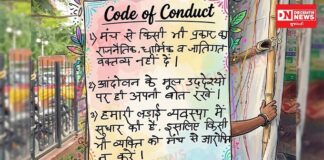 Code of Conduct
DN
DECIMATH
NEWS
1) मंच से किसी भी प्रकार का
राजनैतिक, धार्मिक व जातिगत
वक्तव्य नहीं दें।
2) आंदोलन के मूल उद्देश्यों
पर ही अपनी बात रखें।
3) हमारी लड़ाई व्यवस्था में
सुधार की है, इसलिए किसी
भी व्यक्ति को मंच से
न करें।